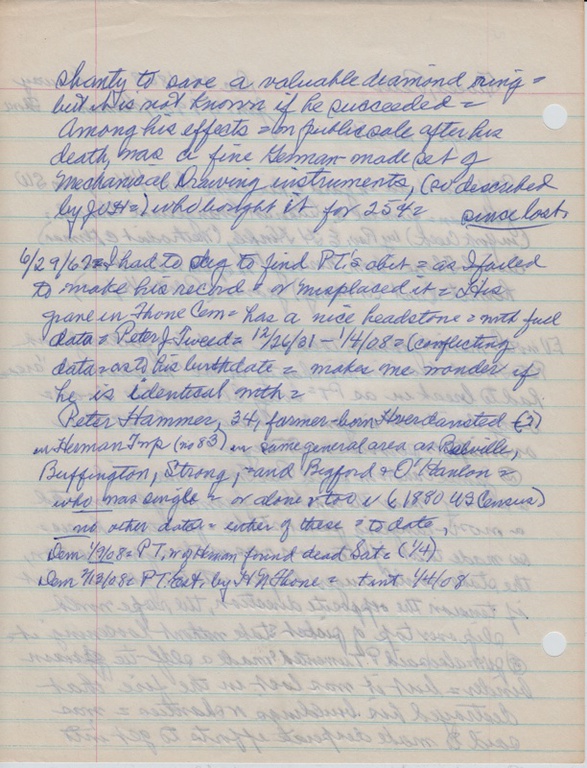 shanty to save a valuable diamond ring =
but it is not known if he succeeded =
Among his effects = on public sale after his
death, was a fine German-made set of
Mechanical Drawing instruments, (so described
by JOH=) who bought it for 25¢ = since lost.
6/29/67 = I had to dig to find PT's obit = as I failed
to make his record = or misplaced it = His
grave in Thone Cem = has a nice headstone = with full
data = Peter J Tweed = 12/26/31 – 1/4/08 = (conflicting
data = as to his birthdate = makes me wonder if
he is identical with =
Peter Hammer, 34, farmer-born (?)
in Herman Twp (no 83) in same general area as
Buffington, Strong, = and Bigford & O'Hanlon =
who was single = or alone too in (1880 US Census)
no other data = either of these = to date,
Dem 1/9/08 = PT, of Herman found dead Sat = (1/4)
Dem 2/13/08 = PT Est, by H N Thone = 1/4/08